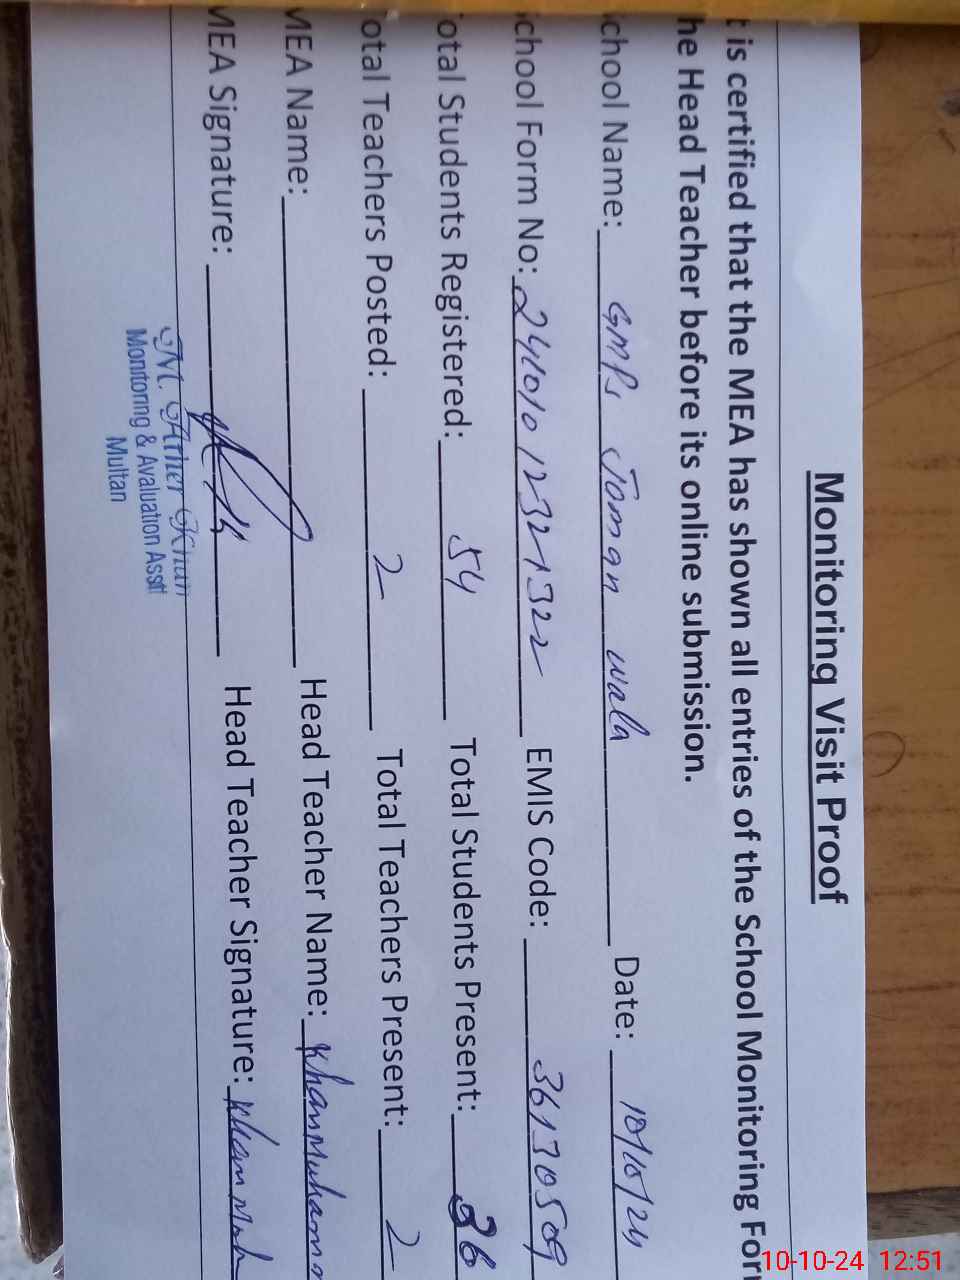 Monitoring Visit Proof
t is certified that the MEA has shown all entries of the School Monitoring For
he Head Teacher before its online submission.
chool Name: GMPS Joman wala Date: 10/10/24
chool Form No: 241010 12321322 EMIS Code: 36130509
otal Students Registered: 54 Total Students Present: 36
otal Teachers Posted: 2 Total Teachers Present: 2
MEA Name: Head Teacher Name: Khan Muhamm
MEA Signature: Head Teacher Signature: Khan Muh
M. Ather Khan
Monitoring & Avaluation Asstt
Multan
10-10-24 12:51